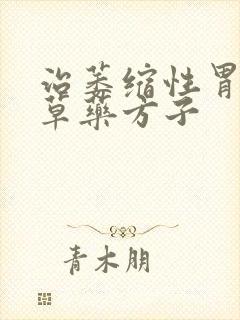 治萎缩性胃
草藥方子
青木朋